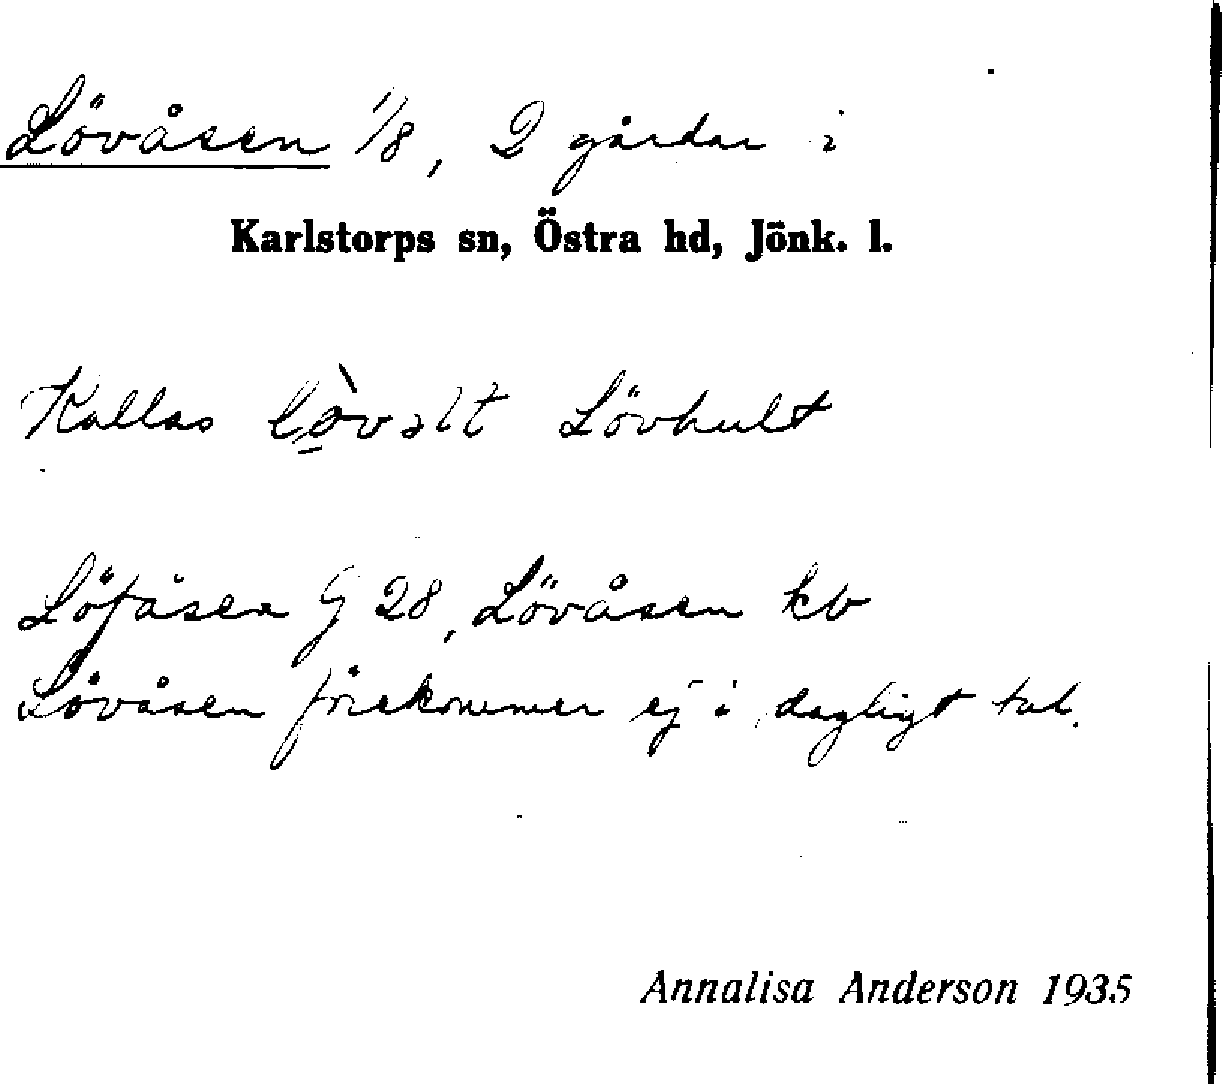 Lövåsen 1/8, 2 gårdar i
Karlstorps sn, Östra hd, Jönk. l.
Kallas Lövhult
Löfåsen G 28, Lövåsen kb
Lövåsen förekommer ej i dagligt tal.
Annalisa Anderson 1935